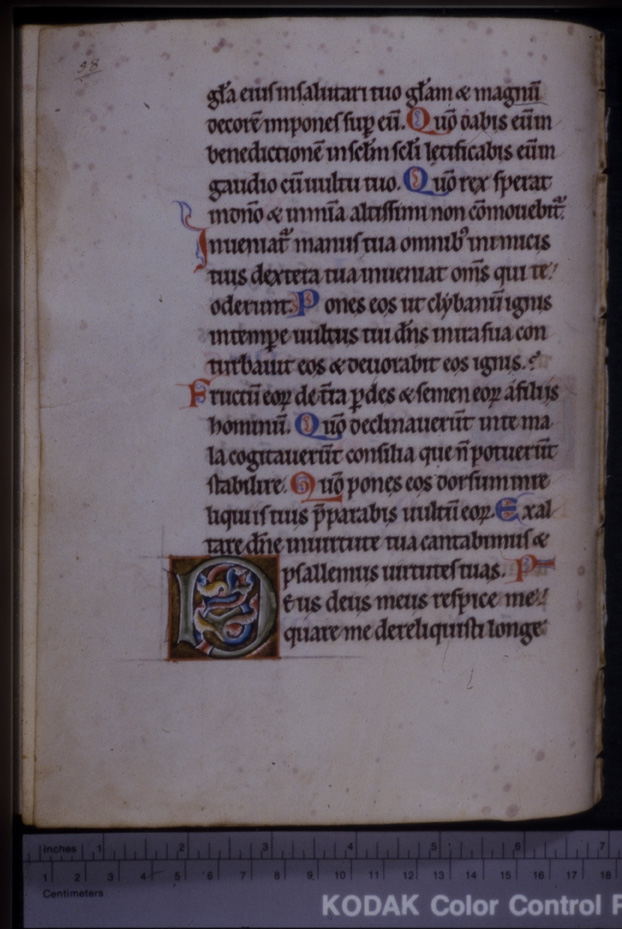 gl̄a eius in salutari tuo gl̄am & magnū
decorē impones sup eū. Quō dabis eū in
benedictionē in sc̄lm sc̄li lętificabis eū in
gaudio cū uultu tuo. Quō rex sperat
in dn̄o & in mīa altissimi non cōmouebit̄.
Inueniat̄ manus tua omnib; inimicis
tuis dextera tua inueniat om̄s qui te
oderunt. Pones eos ut clybanū ignis
in tempe uultus tui dn̄s in ira sua con
turbauit eos & deuorabit eos ignis.
Fructū eoꝝ de t̄ra ꝑdes & semen eoꝝ a filiis
hominū. Quō declinauerūt in te ma
la cogitauerūt consilia que n̄ potuerūt
stabilire. Quō pones eos dorsum in re
liquis tuis p̄parabis uultū eoꝝ. Exal
tare dn̄e in uirtute tua cantabimus &
psallemus uirtutes tuas. P
Deus deus meus respice me
quare me dereliquisti longe
inches 1 2 3 4 5 6 7
1 2 3 4 5 6 7 8 9 10 11 12 13 14 15 16 17 18
Centimeters
KODAK Color Control P